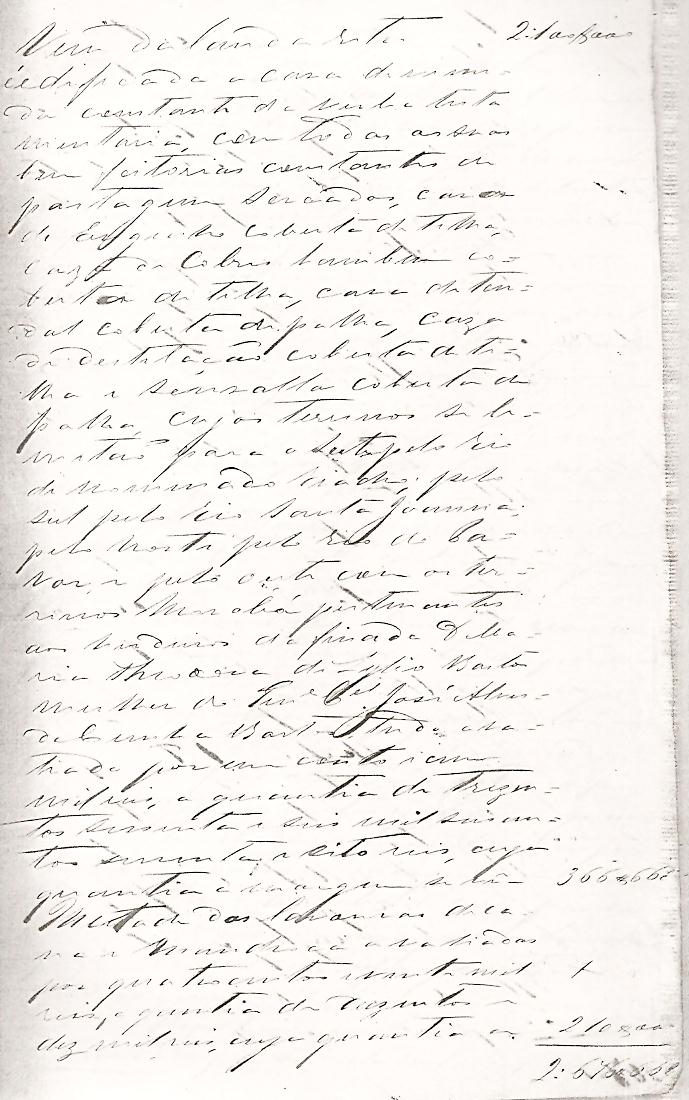 Vem da lauda retro 2:100$000
edificada a casa de viven-
da constante da verba testa
mentaria, com todas as suas
bem feitorias constantes de
pastagem sercados, casa
de Engenho coberta de telha,
caza de Cobres tambem co-
berta de telha, casa de ten-
dal coberta de palha, caza
de destilação coberta de te-
lha e senzalla coberta de
palha, cujos terrenos se li-
mitão para o Leste pelo Rio
denominado Riacho, pelo
sul pelo Rio Santa Joanna,
pelo Norte pelo Rio do
e pelo oeste com os ter-
renos pertencentes
aos herdeiros da finada D. Ma-
ria Theodora
mulher do Tene Cel José Alves
da Cunha tudo ava-
liado por um conto e cem
mil reis, a quantia de trezen-
tos sessenta e seis mil seiscen-
tos sessenta e seis reis, cuja
quantia á margem se vê 366$666
Metade das lavouras de ca-
na e Mandioca avaliadas
por quatrocentos e vinte mil
reis, a quantia de duzentos e
dez mil reis, cuja quantia a 210$000
2:676$666